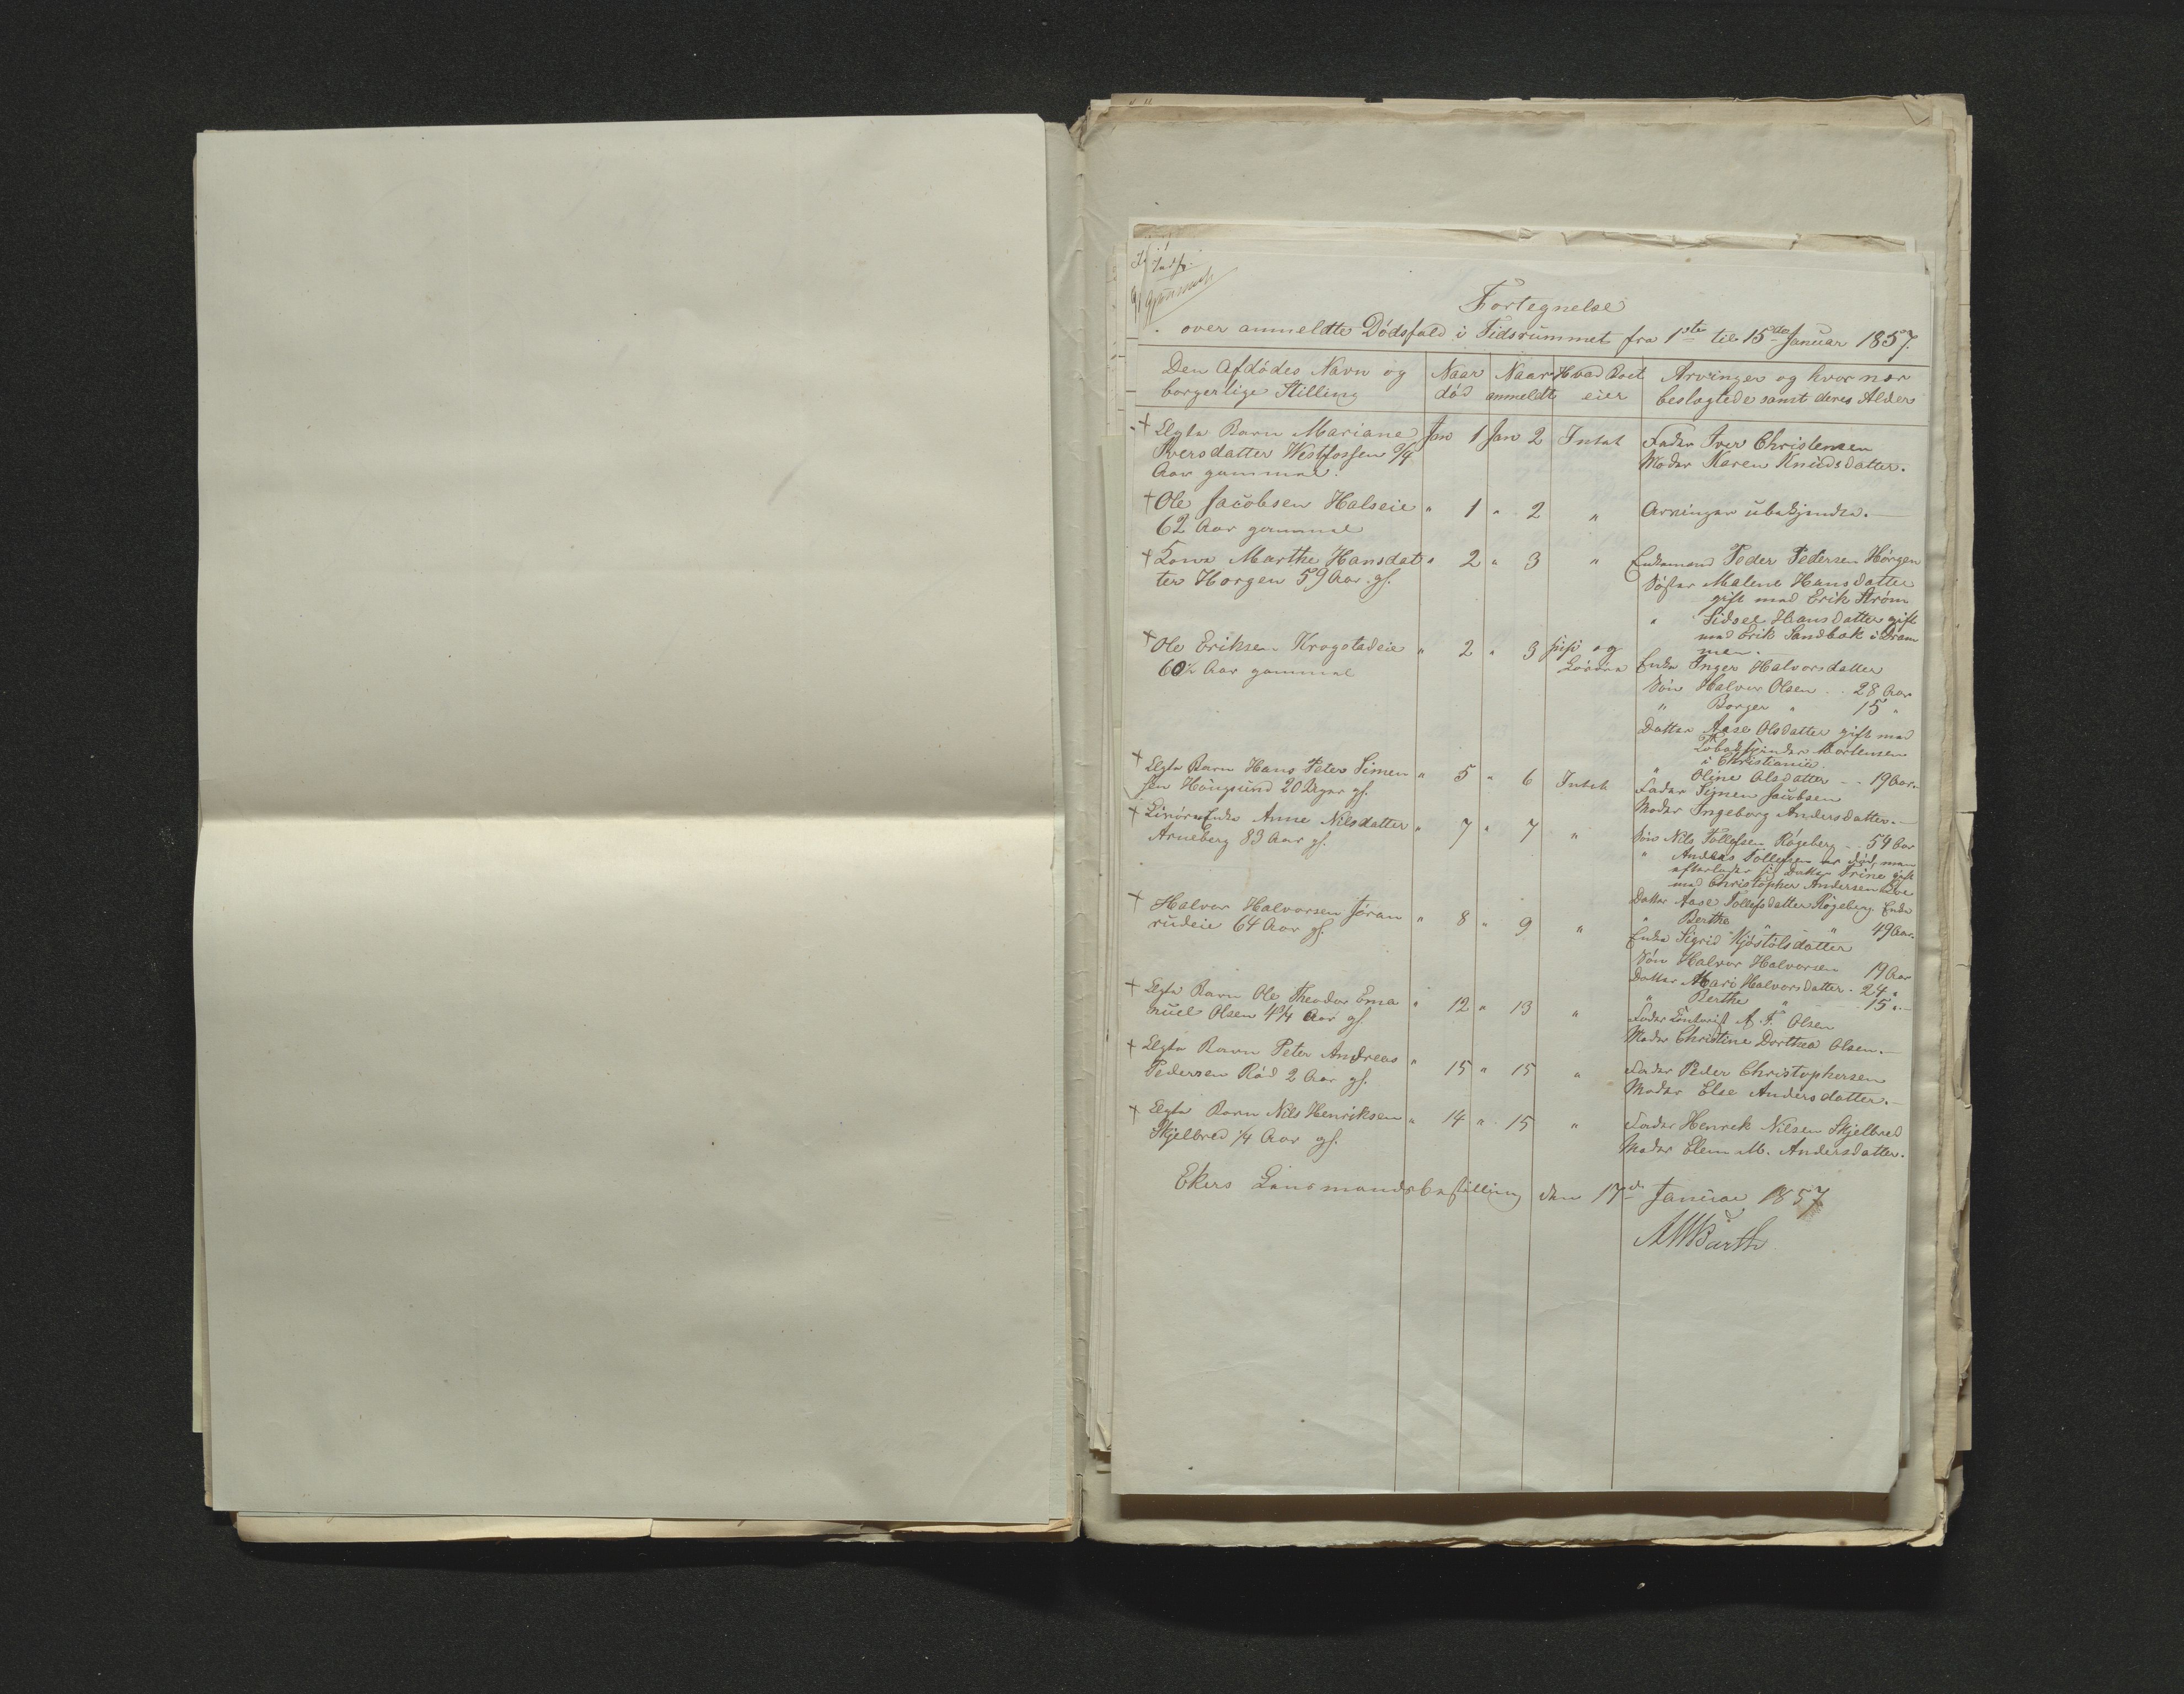 Fortegnelse
over anmeldte Dödsfald i Tidsrummet fra 1ste til 15de Januar 1857.
Den Afdödes Navn og borgerlige Stilling
Naar död
Naar anmeldt
Hvad Boet eier
Arvinger og hvor nær beslægtede samt deres Alder
† Ægte Barn Mariane Jan 1 Jan 2 Intet Fader Iver Christensen
Iversdatter Westfossen 3/4 Moder Karen Knudsdatter.
Aar gammel.
† Ole Jacobsen Halseie " 1 " 2 " Arvinger ubekjendte.
62 Aar gammel
† Kone Marthe Hansdat " 2 " 3 " Enkemand Peder Pedersen Horgen
ter Horgen 59 Aar gl. Söster Malene Hansdatter
gift med Erik Ström
" Sidsel Hansdatter gift
med Erik Sandbak i Dram
men.
† Ole Eriksen Krogstadeie " 2 " 3 og Enke Inger Halvorsdatter
60½ Aar gammel Lösöre
Sön Halvor Olsen . . 28 Aar
" Borger " 15 "
Datter Aase Olsdatter gift med
Tobakspinder Mortensen
i Christiania.
" Oline Olsdatter - - 19 Aar.
† Ægte Barn Hans Peter Simen " 5 " 6 Intet Fader Simen Jacobsen
sen Hougsund 20 Uger gl. Moder Ingeborg Andersdatter.
† Enke Anne Nilsdatter " 7 " 7 " Sön Nils Tollefsen Rögeberg - - 54 Aar
Arneberg 83 Aar gl. " Anders Tollefsen er död, men
efterlader sig Datter Trine gift
med Christopher Andersen
Datter Aase Tollefsdatter Rögeberg Enke
" Berthe " " 49 Aar.
† Halvor Halvorsen Jöran " 8 " 9 " Enke Sigrid Kjöstölsdatter
rudeie 64 Aar gl. Sön Halvor Halvorsen 19 Aar
Datter Mari Halvorsdatter . 24 "
" Berthe " 15 "
† Ægte Barn Ole Theodor Ema " 12 " 13 " Fader A. Olsen
nuel Olsen 4¼ Aar gl. Moder Christine Dorthea Olsen.
† Ægte Barn Peter Andreas " 15 " 15 " Fader Peder Christophersen
Pedersen Röd 2 Aar gl. Moder Else Andersdatter.
† Ægte Barn Nils Henriksen " 14 " 15 " Fader Henrek Nilsen Skjelbred
Skjelbred ¼ Aar gl. Moder Elen M. Andersdatter.
Ekers Lensmandsbestilling den 17de Januar 1857
Barth